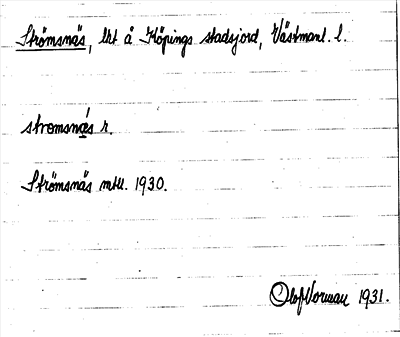 Strömsnäs, lht å Köpings stadsjord, Västmanl. l.
stromsnǽs r.
Strömsnäs mtl. 1930.
Olof Norman 1931.